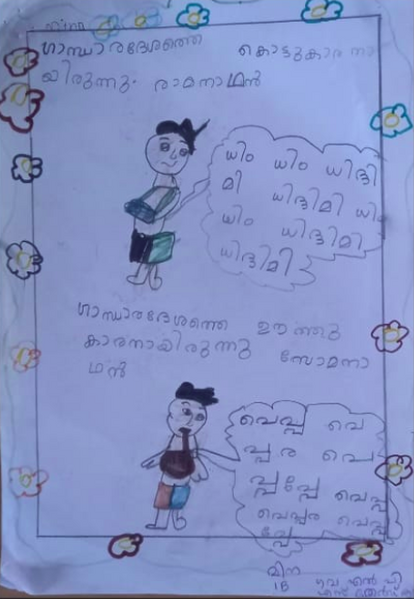 ഗാന്ധാരദേശത്തെ കൊട്ടുകാരനാ
യിരുന്നു. രാമനാഥൻ
ധിം ധിം ധിദ്ദി
മി ധിദ്ദിമി ധി
ധിം ധിദ്ദിമി
ധിദ്ദിമി
ഗാന്ധാരദേശത്തെ ഊത്തു
കാരനായിരുന്നു സോമനാ
ഥൻ
പെപ്പ പെ
പ്പ ര പെ
പ്പപ്പേ പെപ്പ
പെപ്പര പെപ്പ
പ്പേ
മിന
1B